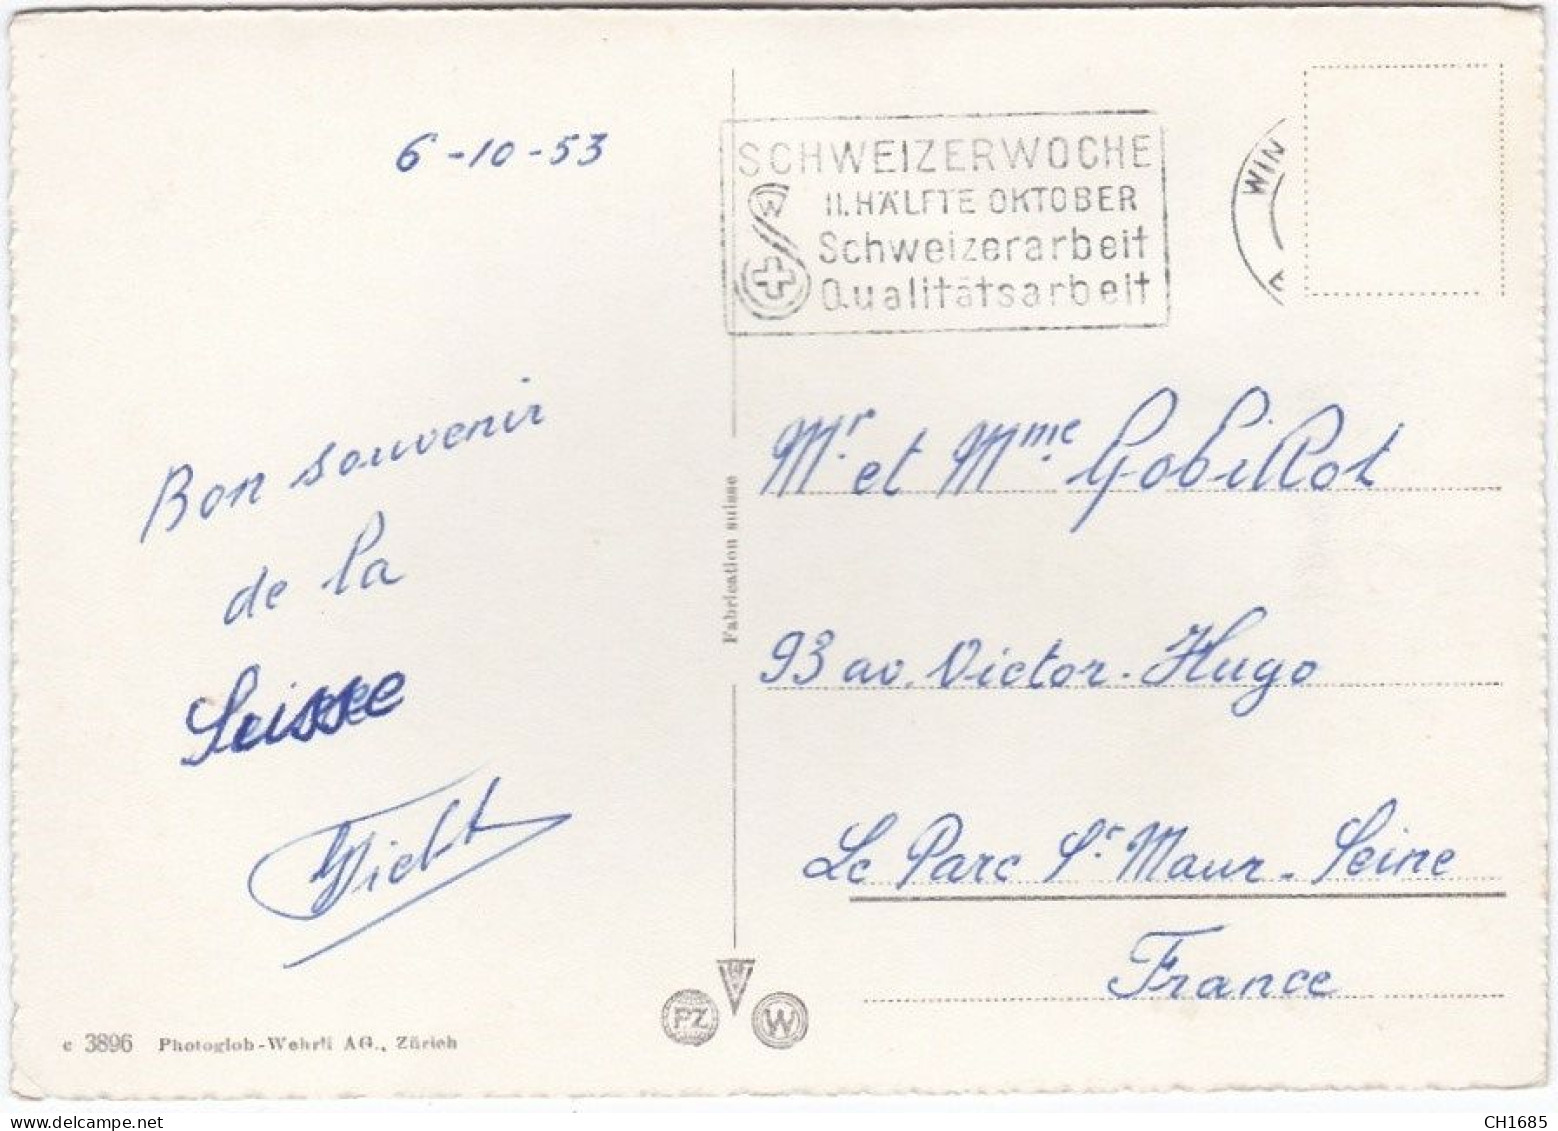 6-10-53
Bon souvenir
de la
Suisse
SCHWEIZERWOCHE
II. HÄLFTE OKTOBER
Schweizerarbeit
Qualitätsarbeit
W
WIN
Mr. et Mme. Gobillot
93 av. Victor-Hugo
Le Parc St Maur - Seine
France
Fabrication suisse
PZ
W
c 3896 Photoglob-Wehrli AG., Zürich
CH1685